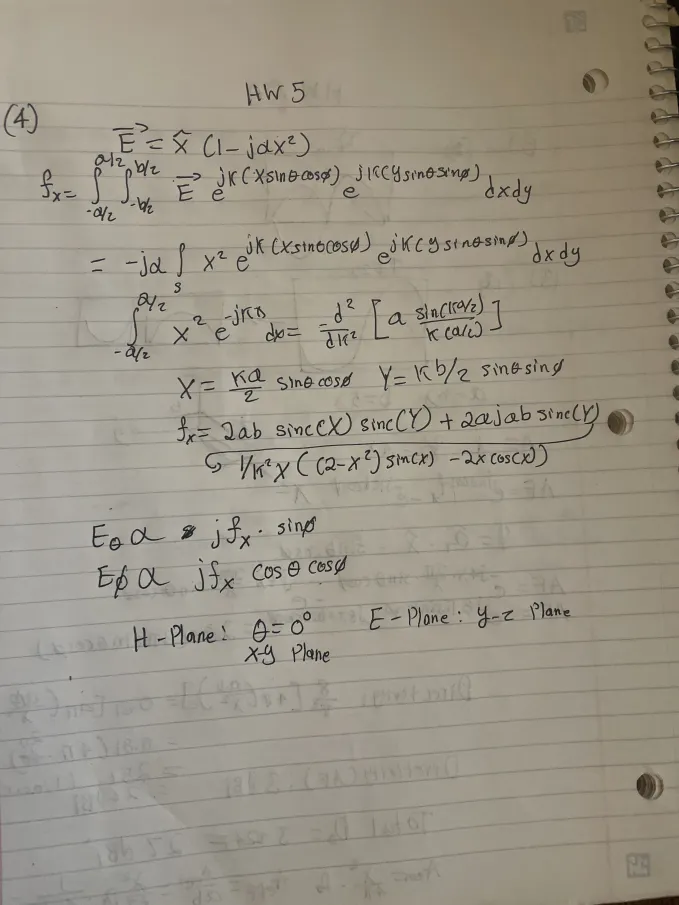 HW 5
(4)
E⃗ = x̂ (1 - jαx²)
fx = ∫_{-a/2}^{a/2} ∫_{-b/2}^{b/2} E⃗ e^{jK(xsinθcosø)} e^{jK(ysinθsinø)} dxdy
= -jα ∫_s x² e^{jK(xsinθcosø)} e^{jK(ysinθsinø)} dxdy
∫_{-a/2}^{a/2} x² e^{-jKx} dx = -d²/dK² [a sin(Ka/2)/K(a/2)]
X = Ka/2 sinθcosø Y = Kb/2 sinθsinø
fx = 2ab sinc(X) sinc(Y) + 2αjab sinc(Y)
↳ 1/K²X ((2-X²) sin(x) - 2x cos(x))
Eθ α jfx · sinø
Eø α jfx cosθ cosø
H-Plane: θ=0° E-Plane: y-z Plane
x-y Plane